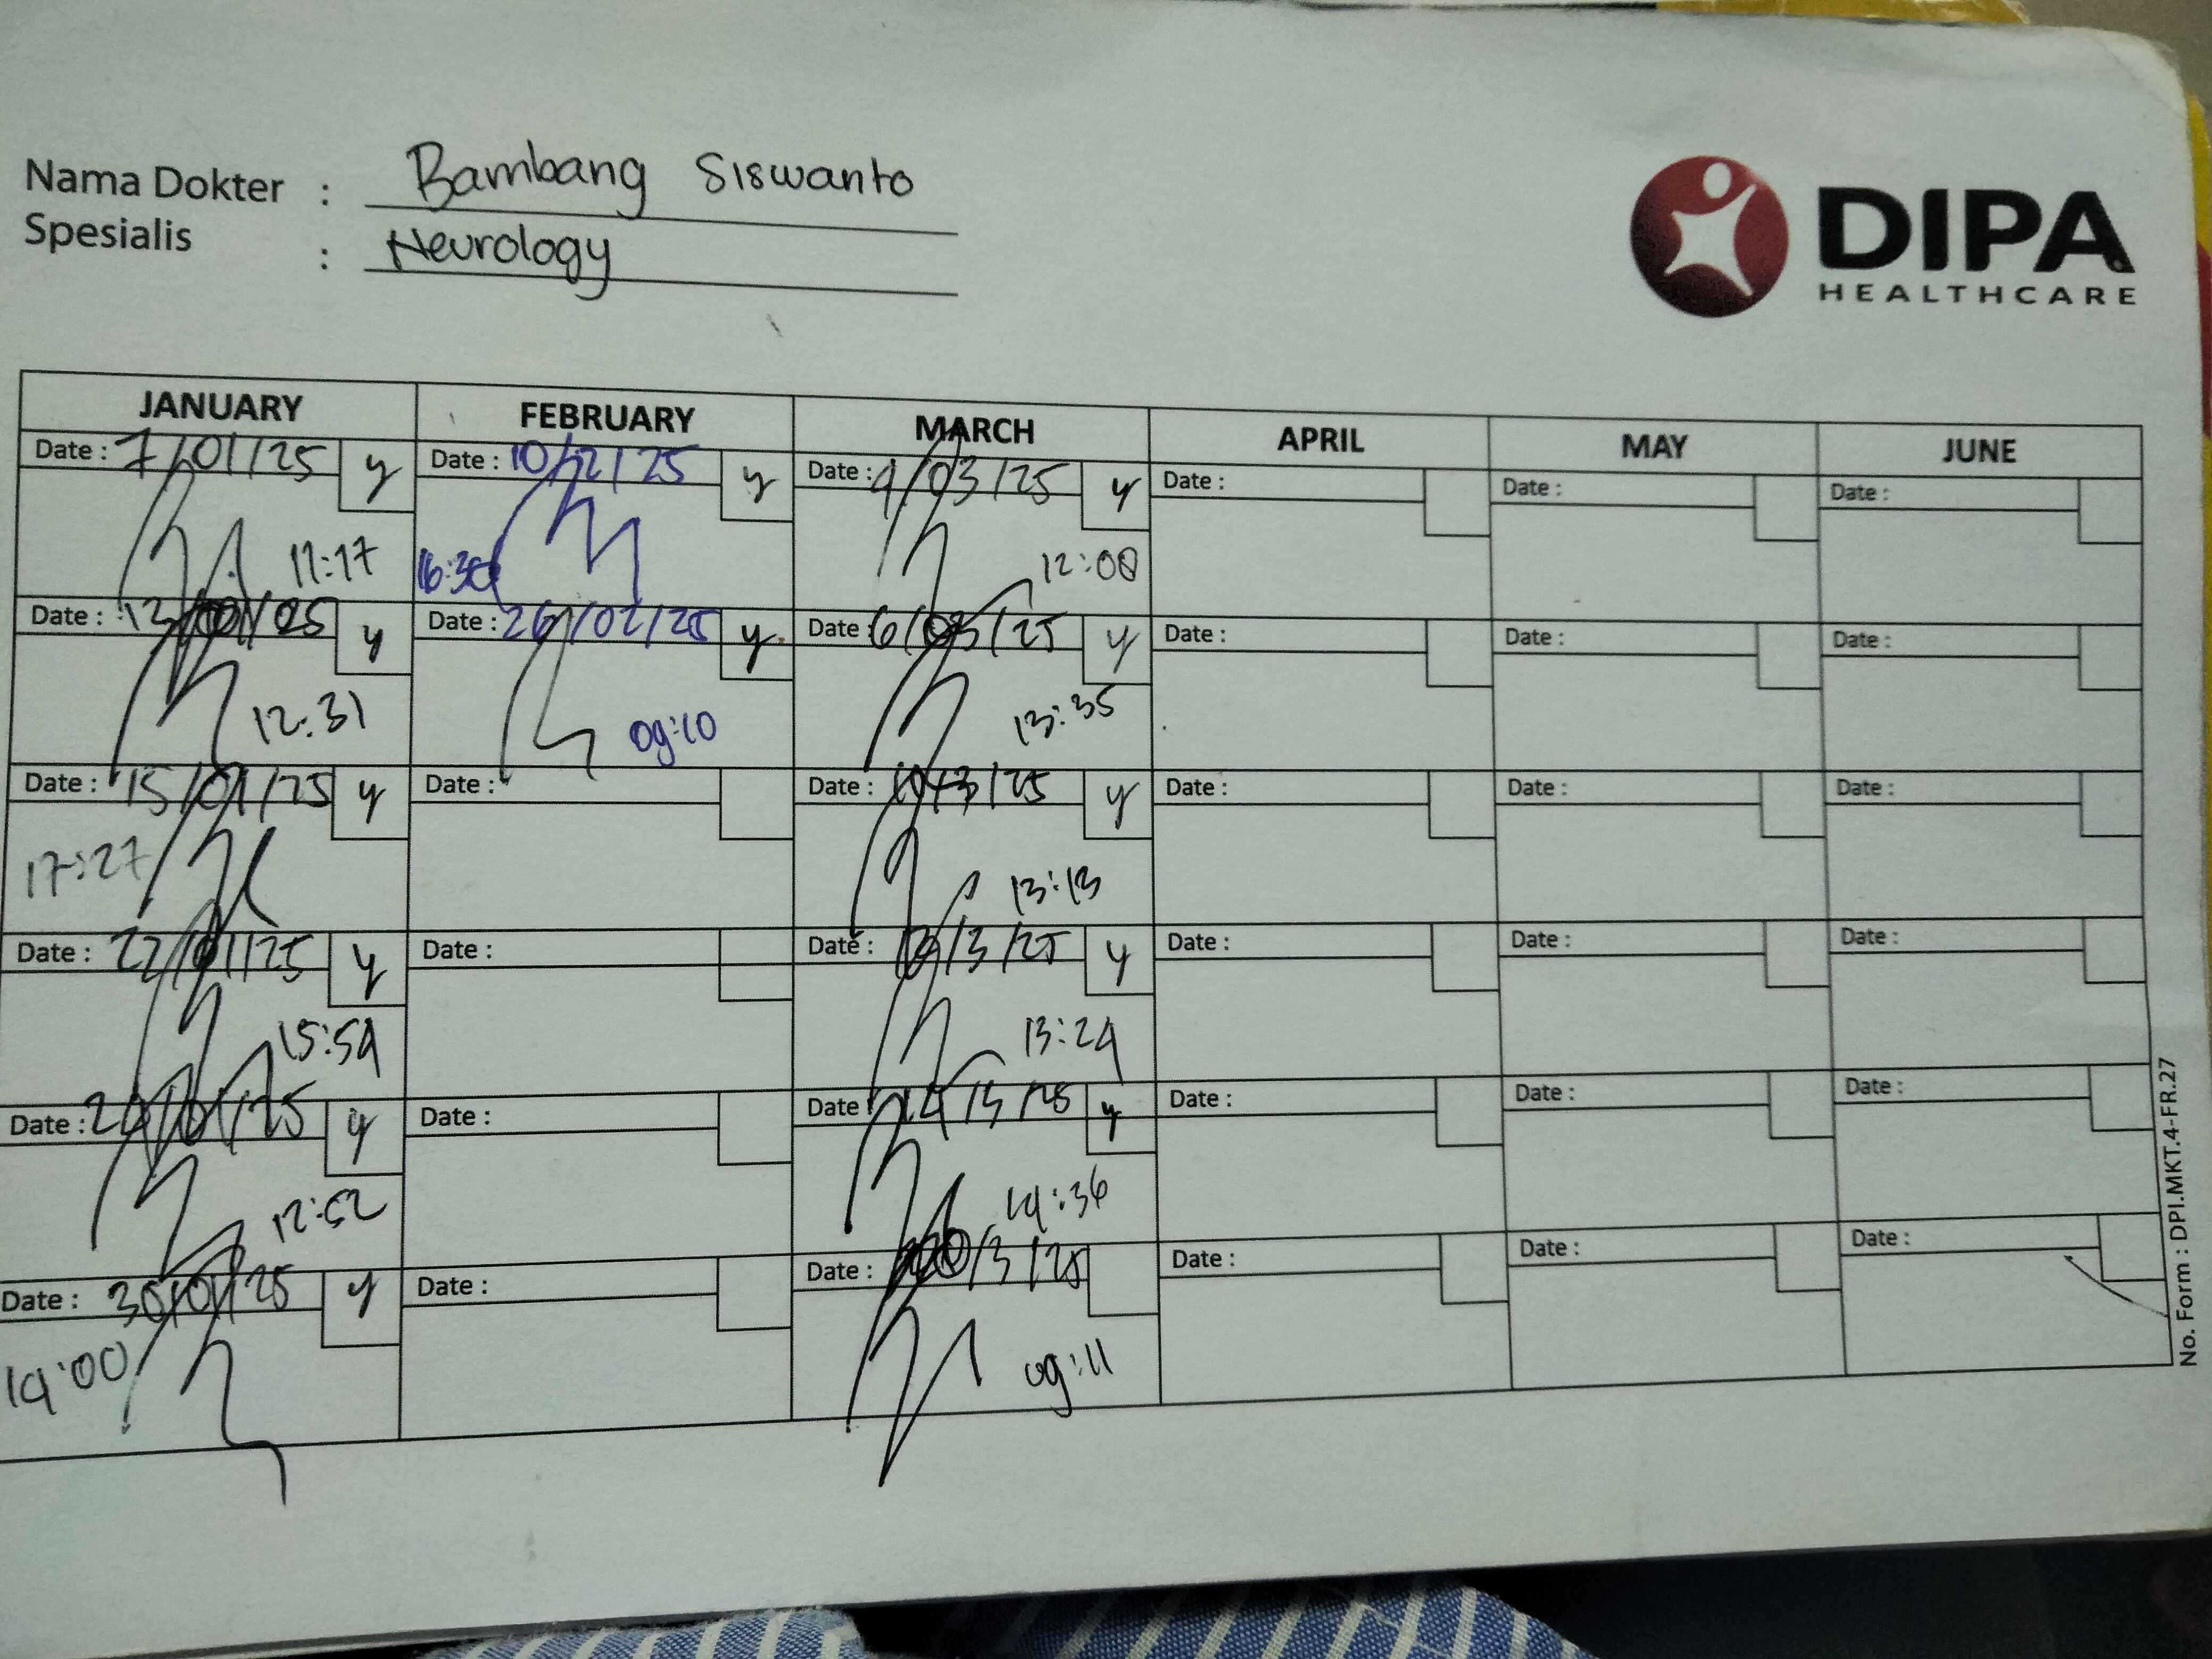 Nama Dokter : Bambang Siswanto
Spesialis : Neurology
DIPA
HEALTHCARE
JANUARY FEBRUARY MARCH APRIL MAY JUNE
Date : 7/01/25 y Date : 10/2/25 y Date : /03/25 y Date : Date : Date :
11:17 16:30 12:00
Date : 13/01/25 y Date : 26/02/25 y Date : 6/03/25 y Date : Date : Date :
12:31 09:10 13:35
Date : 15/01/25 y Date : Date : 10/3/25 y Date : Date : Date :
17:27 13:13
Date : 22/01/25 y Date : Date : /3/25 y Date : Date : Date :
15:54 13:24
Date : /01/25 y Date : Date : 14/3/25 y Date : Date : Date :
12:52 14:36
Date : 30/01/25 y Date : Date : 20/3/25 Date : Date : Date :
14:00 09:11
No. Form : DPI.MKT.4-FR.27